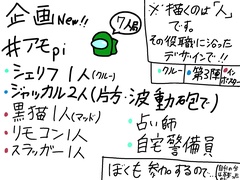 企画 New!!
7人局
#アモpi
・シェリフ1人(クルー)
・ジャッカル2人(片方:波動砲で)
・黒猫1人(マッド)
・リモコン1人
・スラッガー1人
・占い師
・自宅警備員
※描くのは「人」
です。
その役職に沿った
デザインで!!
・クルー
・第3陣
・インポスター
ぼくも参加するので…